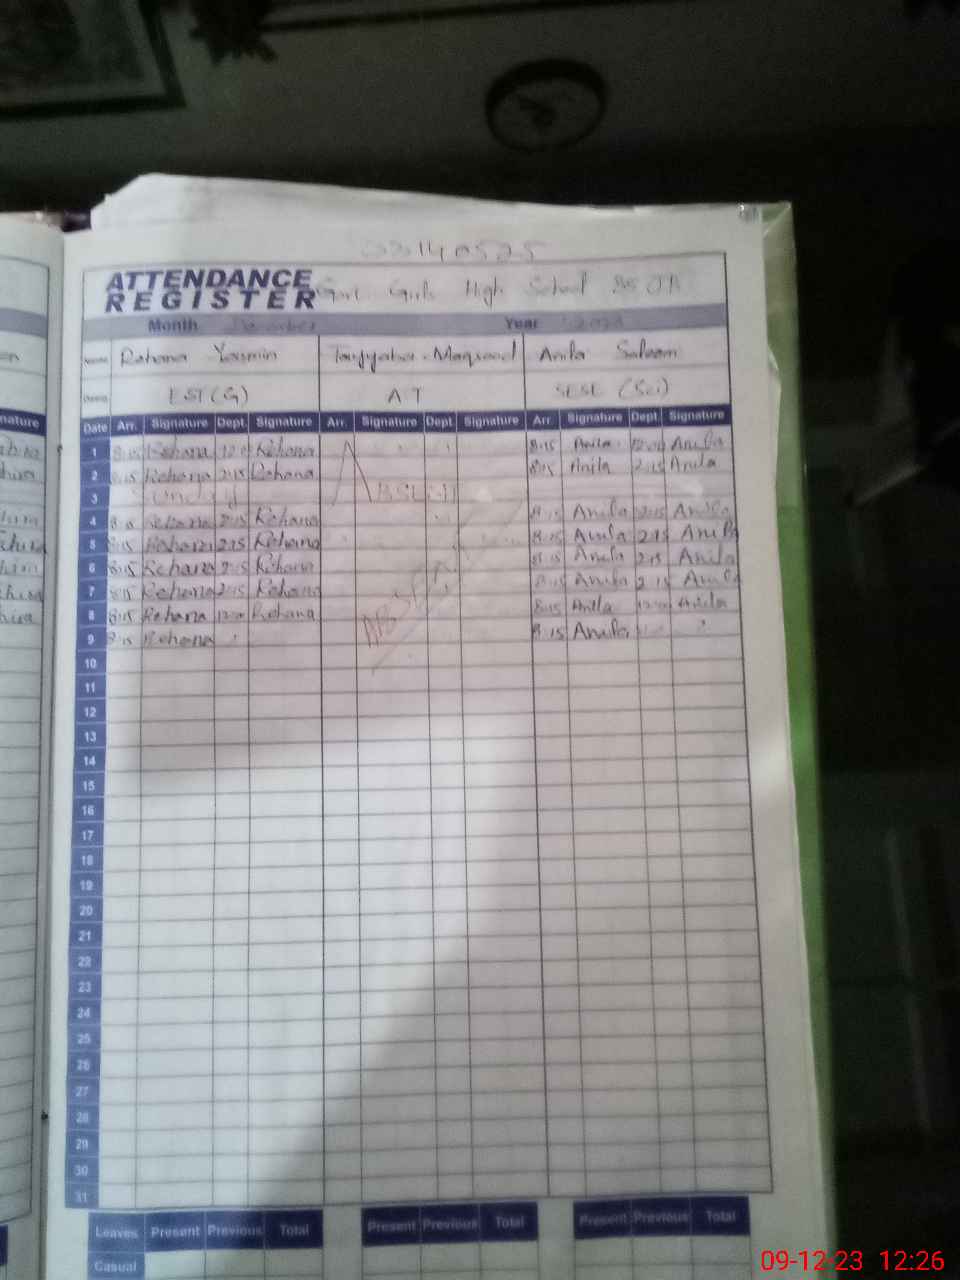 33140525
ATTENDANCE
REGISTER Govt. Girls High School 85 JB
Month December Year 2023
Rehana Yasmin Tayyaba Maqsood Anila Saleem
EST (G) A.T SESE (Sci)
Date Arr. Signature Dept. Signature Arr. Signature Dept. Signature Arr. Signature Dept. Signature
1 8:15 Rehana 12:0 Rehana 8:15 Anila 12:00 Anila
2 8:15 Rehana 2:15 Rehana 8:15 Anila 2:15 Anila
3 Sunday ABSENT
4 8:15 Rehana 2:15 Rehana 8:15 Anila 2:15 Anila
5 8:15 Rehana 2:15 Rehana 8:15 Anila 2:15 Anila
6 8:15 Rehana 2:15 Rehana ABSENT 8:15 Anila 2:15 Anila
7 8:15 Rehana 2:15 Rehana 8:15 Anila 2:15 Anila
8 8:15 Rehana 12:00 Rehana 8:15 Anila 12:00 Anila
9 8:15 Rehana 8:15 Anila
10
11
12
13
14
15
16
17
18
19
20
21
22
23
24
25
26
27
28
29
30
31
Leaves Present Previous Total Present Previous Total Present Previous Total
Casual
09-12-23 12:26